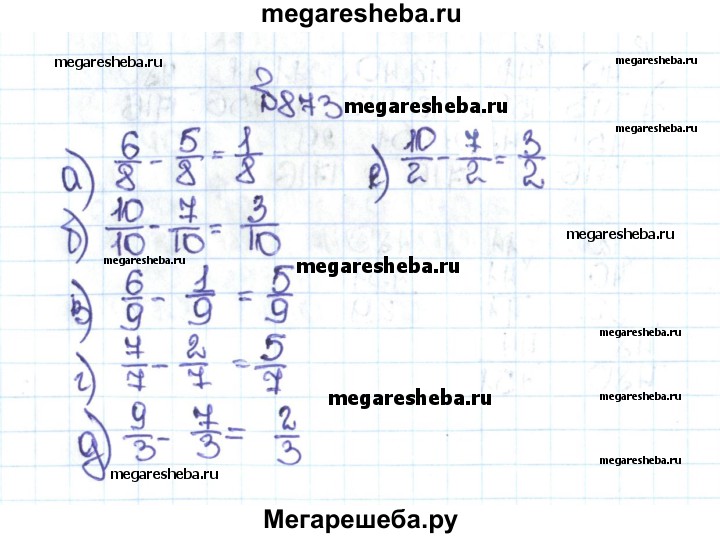 megaresheba.ru
megaresheba.ru
megaresheba.ru
873
megaresheba.ru
megaresheba.ru
а) 6/8 - 5/8 = 1/8
е) 10/2 - 7/2 = 3/2
б) 10/10 - 7/10 = 3/10
megaresheba.ru
megaresheba.ru
megaresheba.ru
в) 6/9 - 1/9 = 5/9
megaresheba.ru
г) 7/7 - 2/7 = 5/7
megaresheba.ru
megaresheba.ru
д) 9/3 - 7/3 = 2/3
megaresheba.ru
megaresheba.ru
Мегарешеба.ру